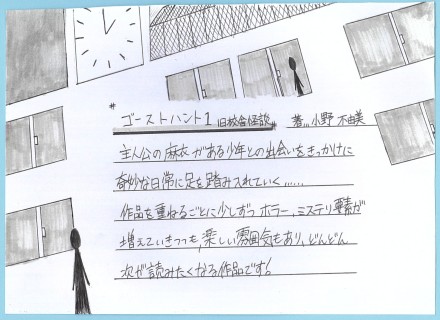 "ゴーストハント1 旧校舎怪談" 著…小野 不由美
主人公の麻衣がある少年との出会いをきっかけに
奇妙な日常に足を踏み入れていく……
作品を重ねるごとに少しずつホラー、ミステリ要素が
増えていきつつも、楽しい雰囲気もあり、どんどん
次が読みたくなる作品です!